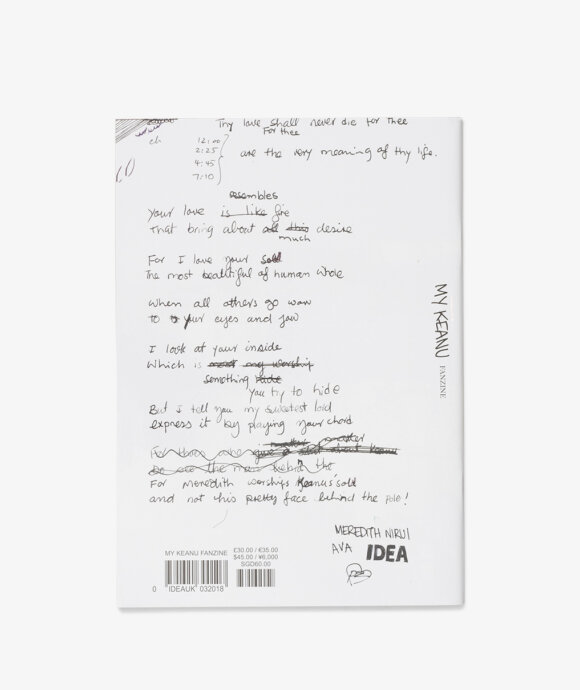 Thy love shall never die for thee
For thee
ch
12:00
2:25
4:45
7:10
are the very meaning of thy life.
resembles
Your love is like fire
That bring about all this desire
much
For I love your
The most beautiful of human whole
When all others go waw
to your eyes and jaw
I look at your inside
Which is most my worship
something hide
You try to hide
But I tell you my sweetest lord
express it by playing your chord
master
For Meredith worships Keanu's
and not his pretty face behind the role!
MY KEANU FANZINE
MEREDITH NIRUI
AVA IDEA
MY KEANU FANZINE
£30.00 / €35.00
$45.00 / ¥6,000
SGD60.00
0 IDEAUK 032018